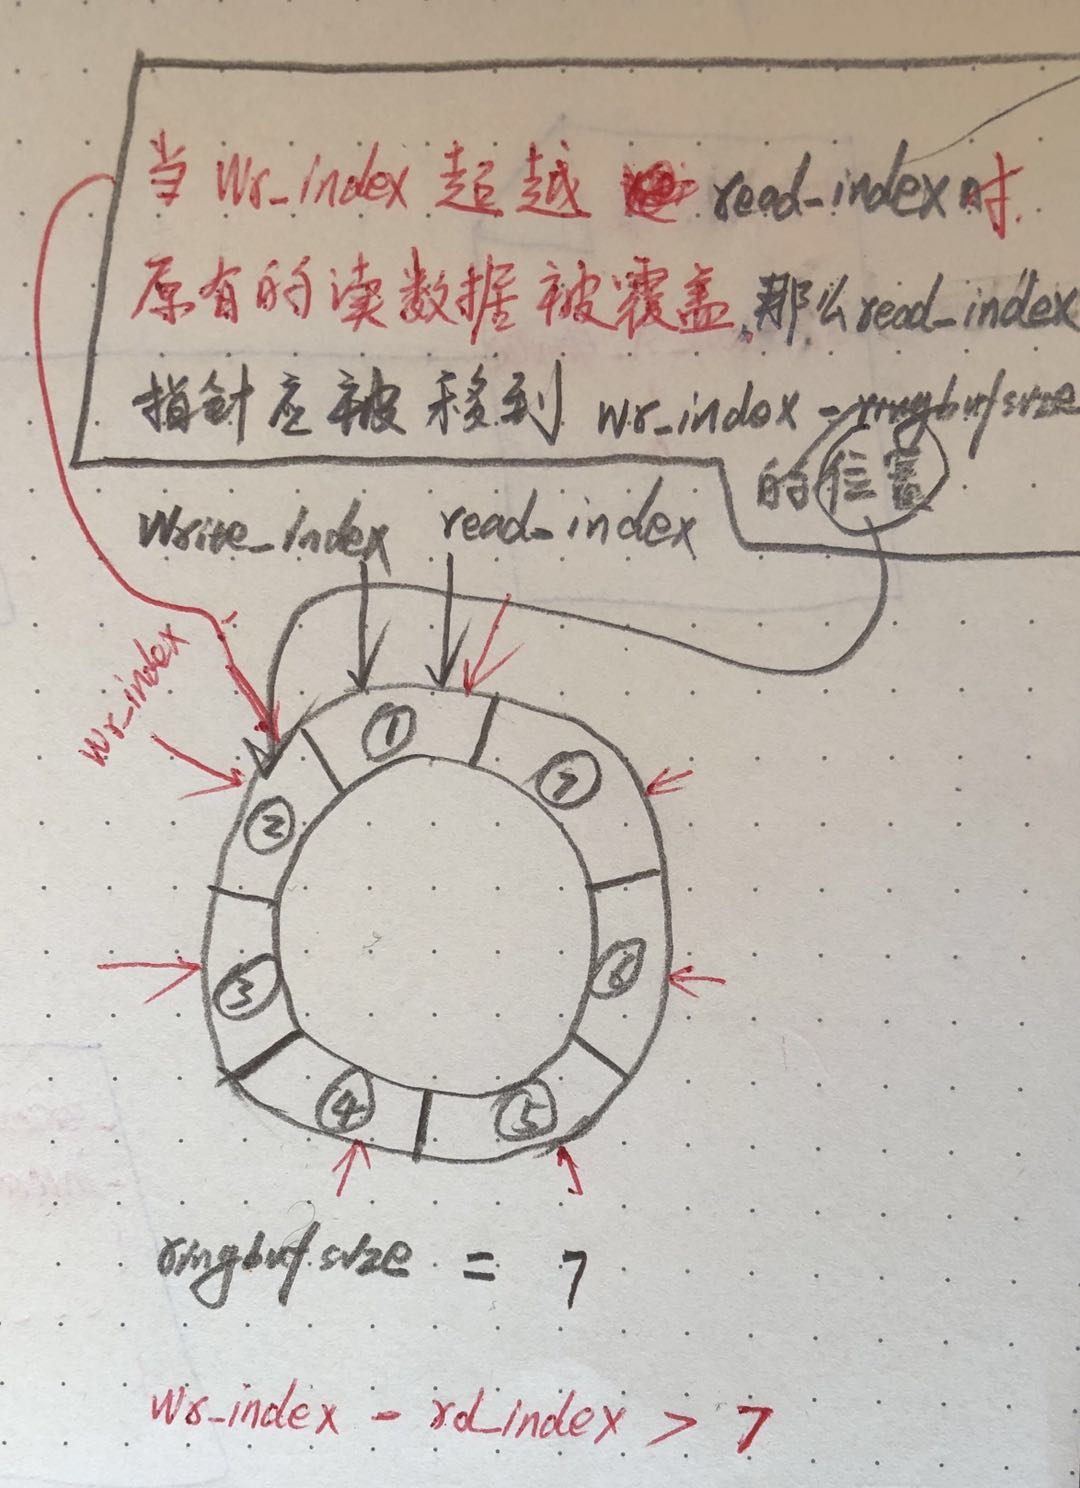 当 Wr_index 超越 read_index 时.
原有的读数据被覆盖,那么read_index
指针应被移到 wr_index - ringbufsize
的位置
Write_Index read_index
Wr_index
①
⑦
②
③
⑥
④
⑤
ringbufsize = 7
Wr_index - rd_index > 7